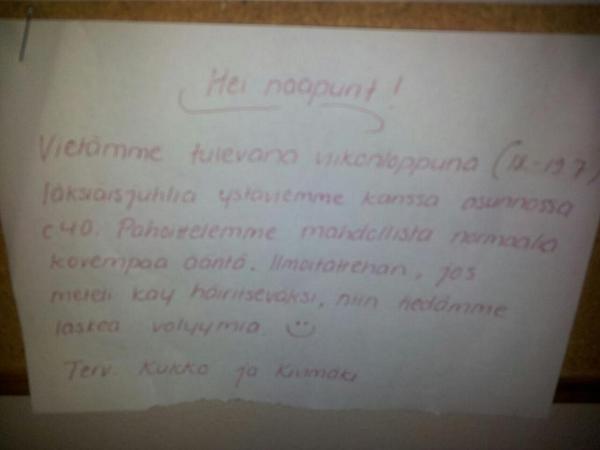 Hei naapurit!
Vietämme tulevana viikonloppuna (18.-19.7)
läksiäisjuhlia ystäviemme kanssa asunnossa
C40. Pahoittelemme mahdollista normaalia
kovempaa ääntä. Ilmoitattehan, jos
meteli käy häiritseväksi, niin tiedämme
laskea volyymia
Terv. Kukko ja Kivimäki